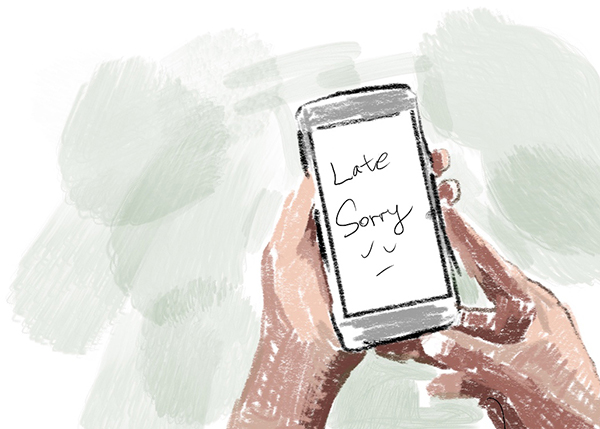 Late
Sorry